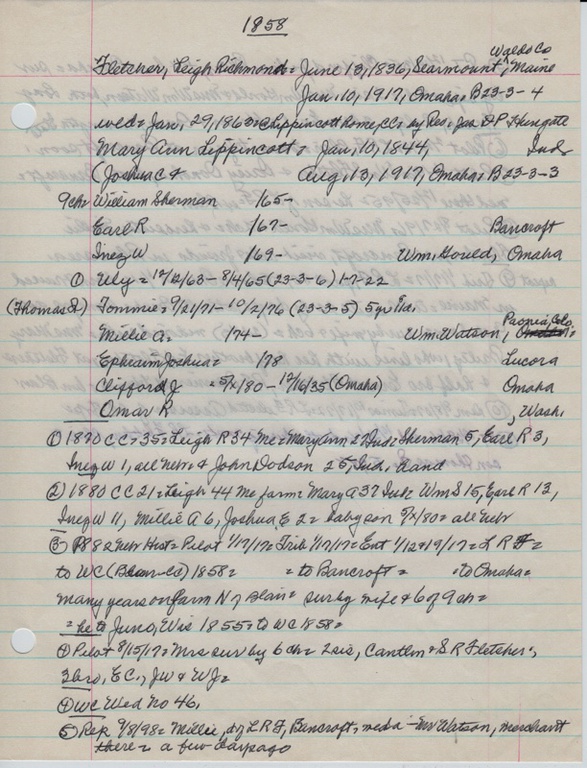 1858
Fletcher, Leigh Richmond = June 13, 1836, Searmount, Waldo Co Maine
Jan. 10, 1917, Omaha = B 23-3-4
wed = Jan. 29, 1863 = Lippincott home, CC = by Rev. Jas. D P Hungate
Mary Ann Lippincott = Jan, 10, 1844, Ind
(Joshua C & Aug. 13, 1917, Omaha = B 23-3-3
9ch = William Sherman 165-
Earl R 167- Bancroft
Inez W 169- Wm. Gould, Omaha
① Uly = 12/12/63 - 8/4/65 (23-3-6) 1-7-22
(Thomas R) Tommie = 9/21/71 - 10/2/76 (23-3-5) 5yr 11d.
Millie A = 174- Wm. Watson, Paonia, Colo
Ephraim Joshua = 178 Lucora
Clifford J = 5/x/80 - 12/16/35 (Omaha) Omaha
Omar R , Wash.
① 1870 CC = 35 = Leigh R 34 Me = Mary Ann 27 Ind = Sherman 5, Earl R 3,
Inez W 1, all Nebr. & John Dodson 25, Ind. hand
② 1880 CC 21 = Leigh 44 Me farm = Mary A 37 Ind = Wm S 15, Earl R 13,
Inez W 11, Millie A 6, Joshua E 2 = baby son 5/x/80 = all Nebr
③ Nebr Hist = Pilot 1/17/17 = Trib 1/17/17 = Ent 1/12 & 19/17 = L R F =
to WC ( ) 1858 = = to Bancroft = = to Omaha =
many years on farm N of Blair = sur by wife & 6 of 9 ch =
= he to Juno, Wis 1855 = to WC 1858 =
④ Pilot 8/15/17 = Mrs sur by 6 ch = 2 sis, Cantlin & S R Fletcher,
3 bro, E C., J W & W J =
④ WC Wed No 46,
⑤ Rep 9/8/98 = Millie, d of L R F, Bancroft, med = Mr Watson, merchant
there = a few days ago